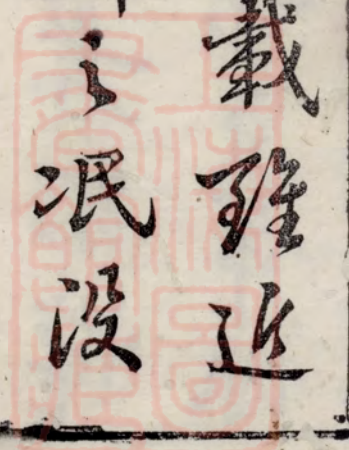 載雖近
之泯没